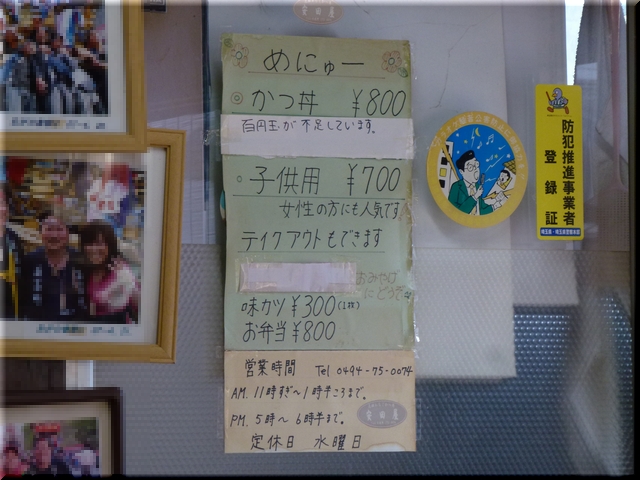 めにゅー
◎かつ丼 ¥800
百円玉が不足しています。
○子供用 ¥700
女性の方にも人気です
テイクアウトもできます
おみやげ
にどうぞ
味カツ ¥300(1枚)
お弁当 ¥800
営業時間 Tel 0494-75-0074
AM. 11時すぎ〜1時半ころまで。
PM. 5時〜6時半まで。
定休日 水曜日
防犯推進事業者
登録証
埼玉県・埼玉県警察本部